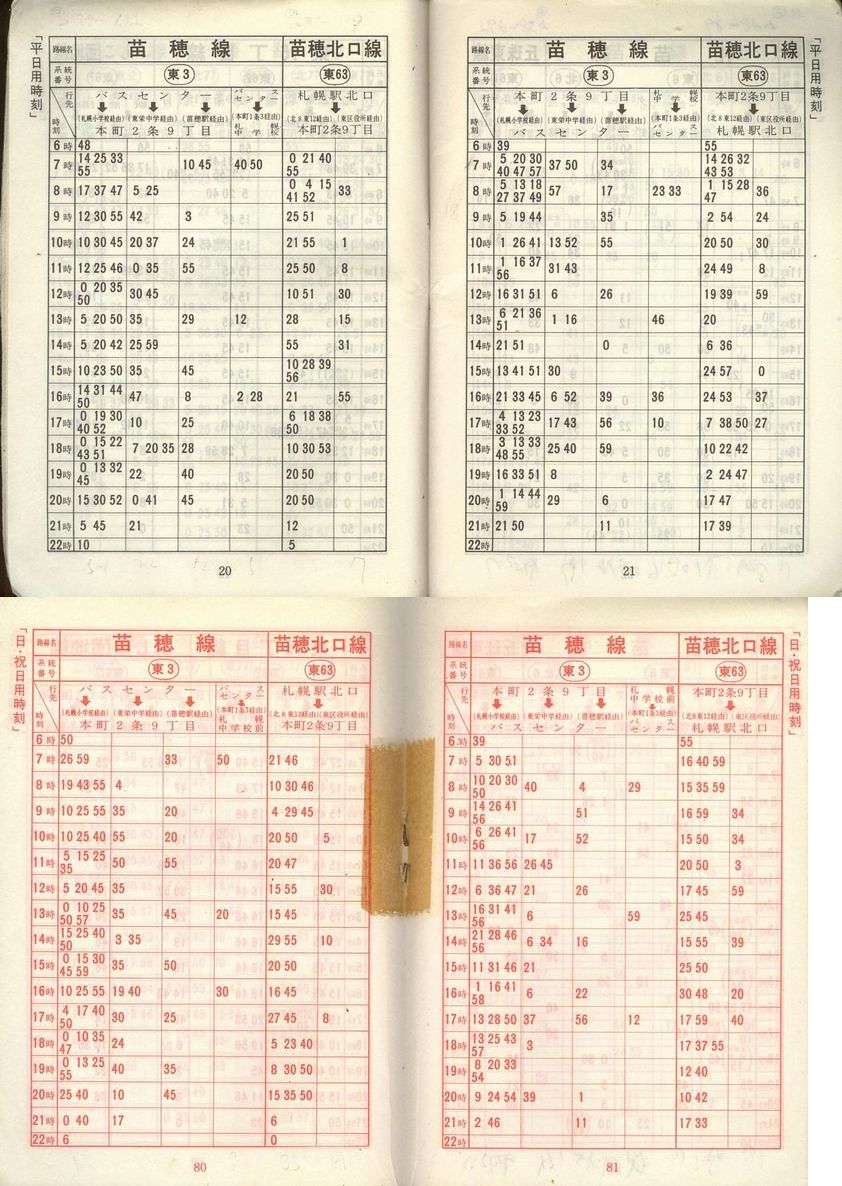 「平日用時刻」
路線名 苗穂線 苗穂北口線
系統番号 東3 東63
行先 バスセンター バスセンター 札幌駅北口
(札幌小学校経由) (東栄中学経由) (苗穂駅経由) (本町1条3経由) (北8東12経由) (東区役所経由)
時刻 本町2条9丁目 札幌中学校 本町2条9丁目
6時 48
7時 14 25 33 55 10 45 40 50 0 21 40 55
8時 17 37 47 5 25 0 4 15 41 52 33
9時 12 30 55 42 3 25 51
10時 10 30 45 20 37 24 21 55 1
11時 12 25 46 0 35 55 25 50 8
12時 0 20 35 50 30 45 10 51 30
13時 5 20 50 35 29 12 28 15
14時 5 20 42 25 59 55 31
15時 10 23 50 35 45 10 28 39 56
16時 14 31 44 50 47 8 2 28 21 55
17時 0 19 30 40 52 10 25 6 18 38 50
18時 0 15 22 43 51 7 20 35 28 10 30 53
19時 0 13 32 45 22 40 20 50
20時 15 30 52 0 41 45 20 50
21時 5 45 21 12
22時 10 5
20
「平日用時刻」
路線名 苗穂線 苗穂北口線
系統番号 東3 東63
行先 本町2条9丁目 札幌中学校 本町2条9丁目
(札幌小学校経由) (東栄中学経由) (苗穂駅経由) (本町1条3経由) (北8東12経由) (東区役所経由)
時刻 バスセンター バスセンター 札幌駅北口
6時 39 55
7時 5 20 30 40 47 57 37 50 34 14 26 32 43 53
8時 5 13 18 27 37 49 57 17 23 33 1 15 28 47 36
9時 5 19 44 35 2 54 24
10時 1 26 41 13 52 55 20 50 30
11時 1 16 37 56 31 43 24 49 8
12時 16 31 51 6 26 19 39 59
13時 6 21 36 51 1 16 46 20
14時 21 51 0 6 36
15時 13 41 51 30 24 57 0
16時 21 33 45 6 52 39 36 24 53 37
17時 4 13 23 33 52 17 43 56 10 7 38 50 27
18時 3 13 33 48 55 25 40 59 10 22 42
19時 16 33 51 8 2 24 47
20時 1 14 44 59 29 6 17 47
21時 21 50 11 17 39
22時
21
「日・祝日用時刻」
路線名 苗穂線 苗穂北口線
系統番号 東3 東63
行先 バスセンター バスセンター 札幌駅北口
(札幌小学校経由) (東栄中学経由) (苗穂駅経由) (本町1条3経由) (北8東12経由) (東区役所経由)
時刻 本町2条9丁目 札幌中学校前 本町2条9丁目
6時 50
7時 26 59 33 50 21 46
8時 19 43 55 4 10 30 46
9時 10 25 55 35 20 4 29 45
10時 10 25 40 55 20 20 50 5
11時 5 15 25 35 50 55 20 47
12時 5 20 45 35 15 55 30
13時 0 10 25 50 57 35 45 20 15 45
14時 15 25 40 50 3 35 29 55 10
15時 0 15 30 45 59 35 50 20 50
16時 10 25 55 19 40 30 16 45
17時 4 17 40 50 30 25 27 45 8
18時 0 10 35 47 24 5 23 40
19時 0 13 25 55 40 35 8 30 50
20時 25 40 10 45 15 35 50
21時 0 40 17 6
22時 6 0
80
「日・祝日用時刻」
路線名 苗穂線 苗穂北口線
系統番号 東3 東63
行先 本町2条9丁目 札幌中学校前 本町2条9丁目
(札幌小学校経由) (東栄中学経由) (苗穂駅経由) (本町1条3経由) (北8東12経由) (東区役所経由)
時刻 バスセンター バスセンター 札幌駅北口
6時 39 55
7時 5 30 51 16 40 59
8時 10 20 30 50 40 4 29 15 35 59
9時 14 26 41 56 51 16 59 34
10時 6 26 41 56 17 52 15 50 34
11時 11 36 56 26 45 20 50 3
12時 6 36 47 21 26 17 45 59
13時 16 31 41 56 6 59 25 45
14時 21 28 46 56 6 34 16 15 55 39
15時 11 31 46 21 25 50
16時 1 16 41 58 6 22 30 48 20
17時 13 28 50 37 56 12 17 59 40
18時 13 25 43 57 3 17 37 55
19時 8 20 33 54 12 40
20時 9 24 54 39 1 10 42
21時 2 46 11 17 33
22時
81